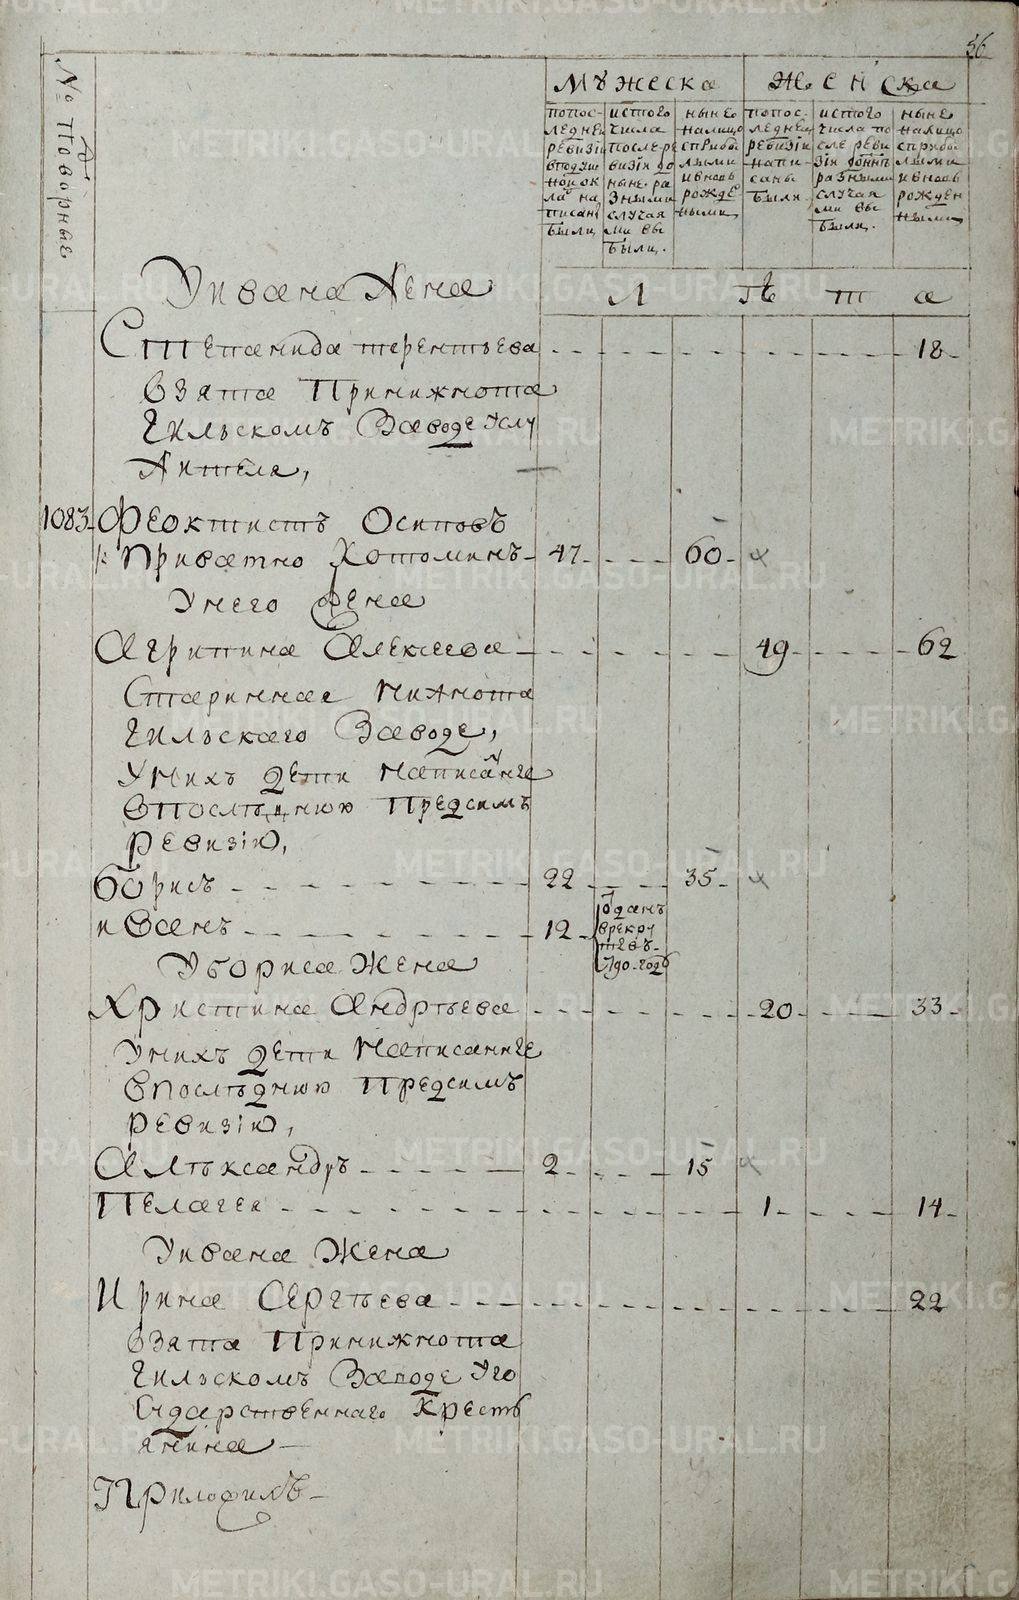 56
№ Подворные
Мужеска
Женска
попос-
ледней
ревизіи
вподуш
ной ок
ла на
писан
были
истого
числа
послере
визіи до
ныне ра
зными
случая
ми вы
были.
ныне
налицо
сприбы
лыми
ивновь
рожде
ными
попос-
ледней
ревизіи
напи-
саны
были
истого
числа по
сле реви
зіи донн
разными
случая
ми вы
были.
ныне
налицо
сприбы
лыми
ивновь
рожден
ными
Л ѣ т а
Уивана Жена
Степанида терентьева 18
взята Принижнота
гильскомъ Заводе услу
жителя,
1083 Феоктистъ Осиповъ
Приватно Хотоминъ 47 60
Унего Жена
Агрипина Алексеева 49 62
Старинная нижнота
гильскаго Заводе,
Унихъ дети написанне
впослѣднюю предсимъ
ревизію,
Борисъ 22 35
иванъ 12 отданъ
врекру
ты въ
790. годѣ
Убориса Жена
Христина Андрѣева 20 33
Унихъ дети написанне
впослѣднюю предсимъ
ревизію,
Алѣксандръ 2 15
Пелагея 1 14
Уивана Жена
Ирина Сергѣева 22
взята Принижнота
гильскомъ Заводе Уго
сударственнаго Кресть
янина